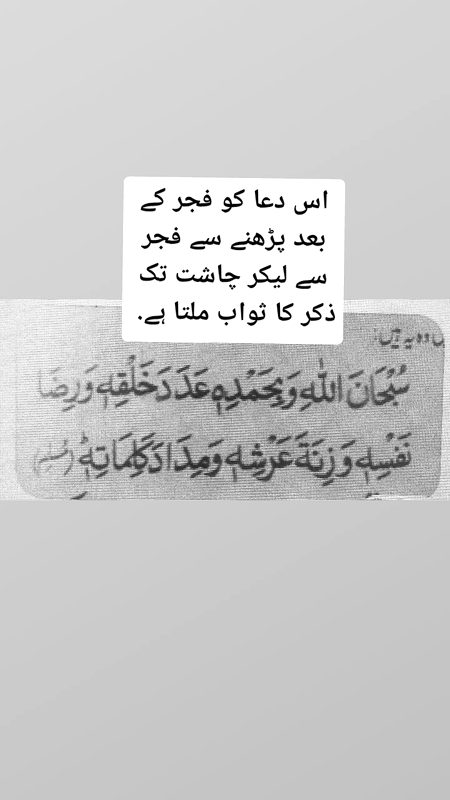 اس دعا کو فجر کے
بعد پڑھنے سے فجر
سے لیکر چاشت تک
ذکر کا ثواب ملتا ہے.
وہ یہ ہیں:
سُبْحَانَ اللّٰهِ وَبِحَمْدِهٖ عَدَدَ خَلْقِهٖ وَرِضَا
نَفْسِهٖ وَزِنَةَ عَرْشِهٖ وَمِدَادَ كَلِمَاتِهٖ (مُسلم)